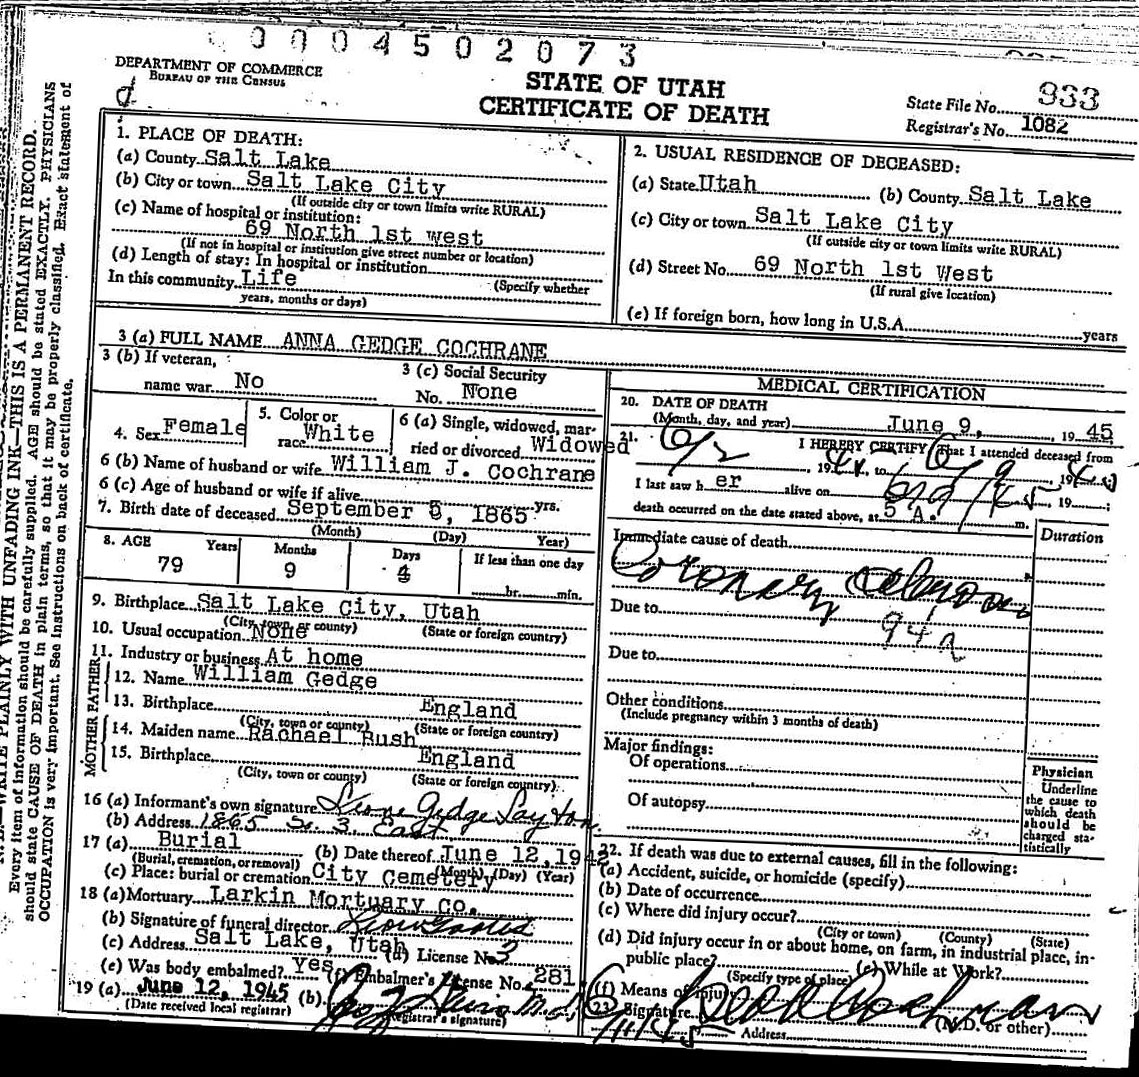 0004502073
DEPARTMENT OF COMMERCE
BUREAU OF THE CENSUS
STATE OF UTAH
CERTIFICATE OF DEATH
State File No. 933
Registrar's No. 1082
WRITE PLAINLY WITH UNFADING INK—THIS IS A PERMANENT RECORD.
Every item of information should be carefully supplied. AGE should be stated EXACTLY. PHYSICIANS
should state CAUSE OF DEATH in plain terms, so that it may be properly classified. Exact statement of
OCCUPATION is very important. See instructions on back of certificate.
1. PLACE OF DEATH:
(a) County Salt Lake
(b) City or town Salt Lake City
(If outside city or town limits write RURAL)
(c) Name of hospital or institution:
69 North 1st west
(If not in hospital or institution give street number or location)
(d) Length of stay: In hospital or institution
In this community Life (Specify whether
years, months or days)
2. USUAL RESIDENCE OF DECEASED:
(a) State Utah (b) County Salt Lake
(c) City or town Salt Lake City
(If outside city or town limits write RURAL)
(d) Street No. 69 North 1st West
(If rural give location)
(e) If foreign born, how long in U.S.A. years
3 (a) FULL NAME ANNA GEDGE COCHRANE
3 (b) If veteran,
name war No
3 (c) Social Security
No. None
4. Sex Female
5. Color or
race White
6 (a) Single, widowed, mar-
ried or divorced Widowed
6 (b) Name of husband or wife William J. Cochrane
6 (c) Age of husband or wife if alive yrs.
7. Birth date of deceased September 5, 1865
(Month) (Day) Year)
8. AGE Years Months Days If less than one day
79 9 4 hr. min.
9. Birthplace Salt Lake City, Utah
(City, town or county) (State or foreign country)
10. Usual occupation None
11. Industry or business At home
FATHER
12. Name William Gedge
13. Birthplace England
(City, town or county) (State or foreign country)
MOTHER
14. Maiden name Rachael Bush
15. Birthplace England
(City, town or county) (State or foreign country)
16 (a) Informant's own signature Leone Gedge Layton
(b) Address 1865 So. 3 East
17 (a) Burial (b) Date thereof June 12, 194
(Burial, cremation, or removal) (Month) (Day) (Year)
(c) Place: burial or cremation City Cemetery
18 (a) Mortuary Larkin Mortuary Co.
(b) Signature of funeral director
(c) Address Salt Lake, Utah (d) License No.
(e) Was body embalmed? Yes (f) Embalmer's License No. 281
19 (a) June 12, 1945 (b)
(Date received local registrar) Registrar's signature)
MEDICAL CERTIFICATION
20. DATE OF DEATH
(Month, day, and year) June 9, 1945
21. I HEREBY CERTIFY That I attended deceased from
6/2, 19 to 6/9 19
I last saw her alive on 6/9/45 19 ;
death occurred on the date stated above, at 5 A. m.
Immediate cause of death Duration
Coronary
Due to 94a
Due to
Other conditions
(Include pregnancy within 3 months of death)
Major findings:
Of operations
Of autopsy
Physician
Underline
the cause to
which death
should be
charged sta-
tistically
22. If death was due to external causes, fill in the following:
(a) Accident, suicide, or homicide (specify)
(b) Date of occurrence
(c) Where did injury occur?
(City or town) (County) (State)
(d) Did injury occur in or about home, on farm, in industrial place, in-
public place? (e) While at Work?
(Specify type of place)
(f) Means of injury
23 Signature (M.D. or other)
Address